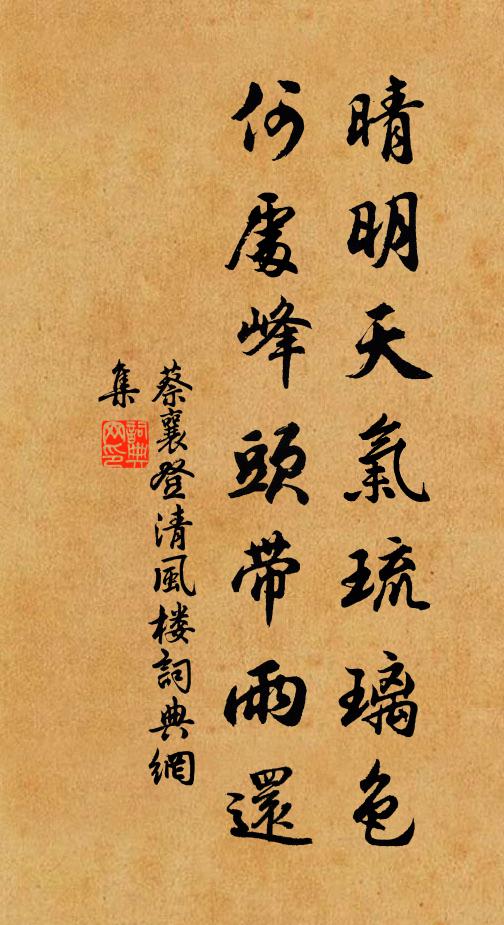 晴明天氣琉璃色
何處峰頭帶雨還
蔡襄登清風楼詞典網
集
詞典
网印